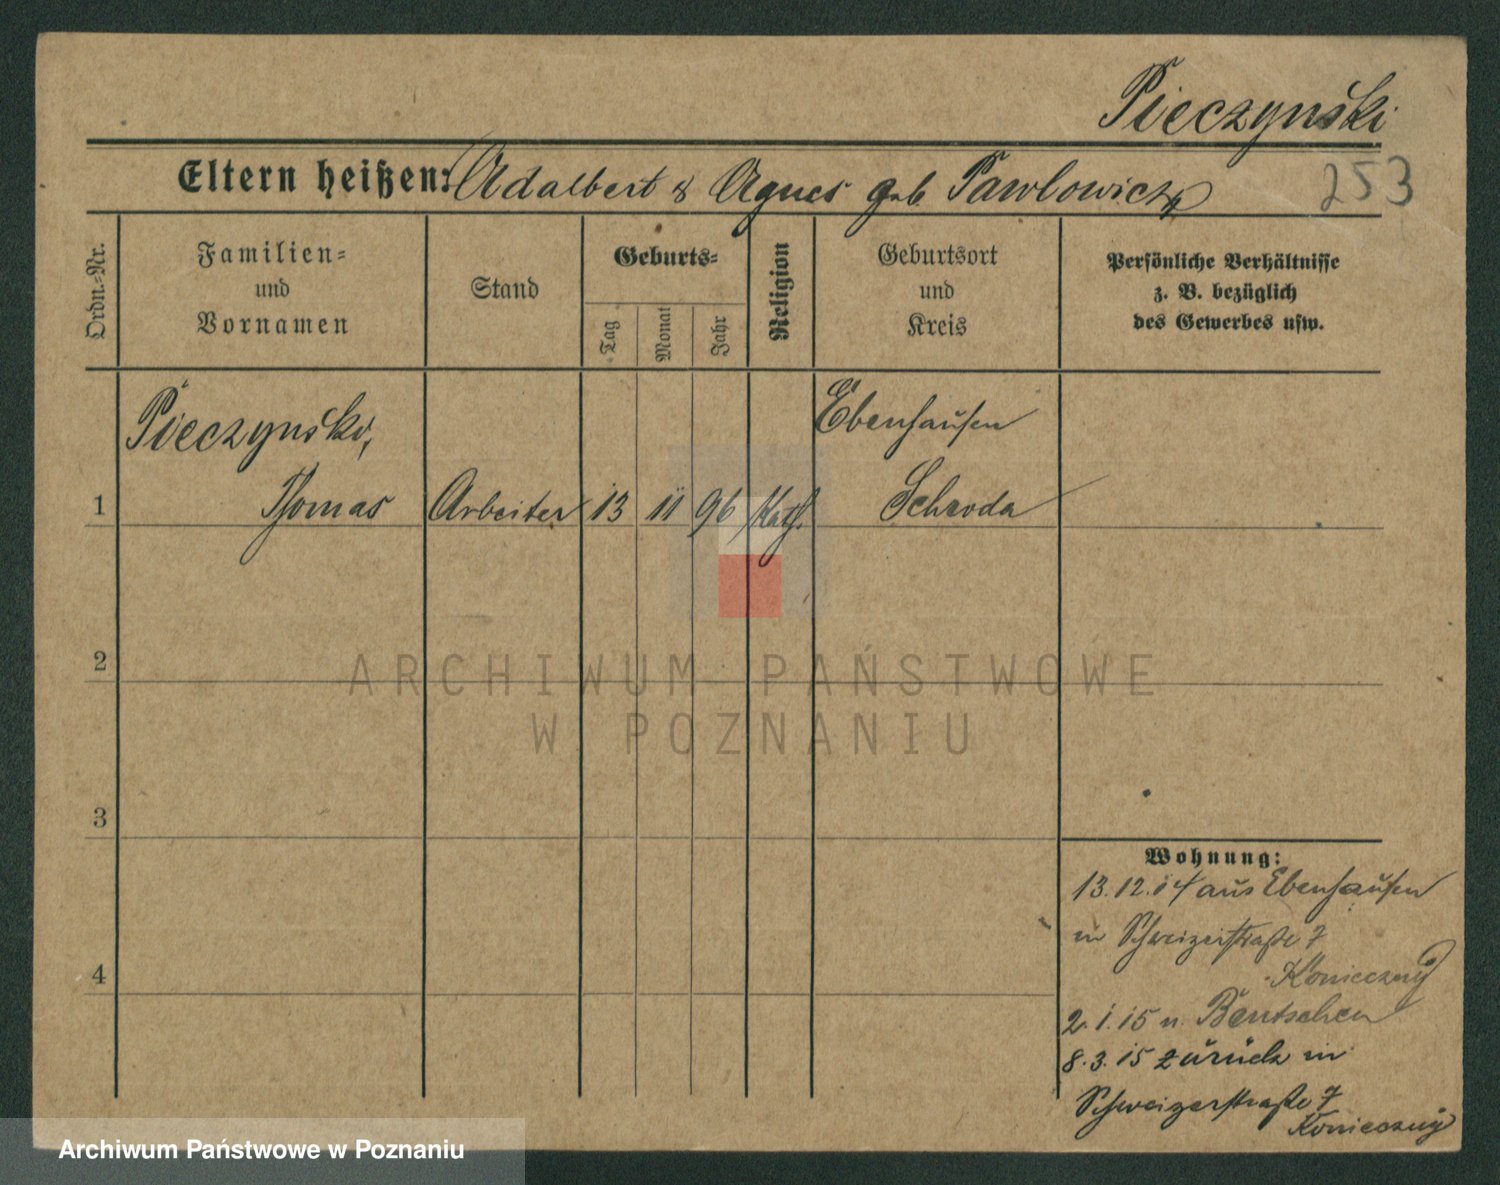 Pieczyński
Eltern heißen: Adalbert & Agnes geb Pawłowicz
253
Ordn.=Nr.
Familien=
und
Vornamen
Stand
Geburts=
Tag
Monat
Jahr
Religion
Geburtsort
und
Kreis
Persönliche Verhältnisse
z. B. bezüglich
des Gewerbes usw.
Pieczyński, Ebenhausen
1 Thomas Arbeiter 13 11 96 Kath. Schroda
2
ARCHIWUM PAŃSTWOWE
W POZNANIU
3
Wohnung:
13.12.14 aus Ebenhausen
in Schweizerstraße 7
4
Konieczny
2.1.15 n. Bentschen
8.3.15 zurück in
Schweizerstraße 7
Konieczny
Archiwum Państwowe w Poznaniu